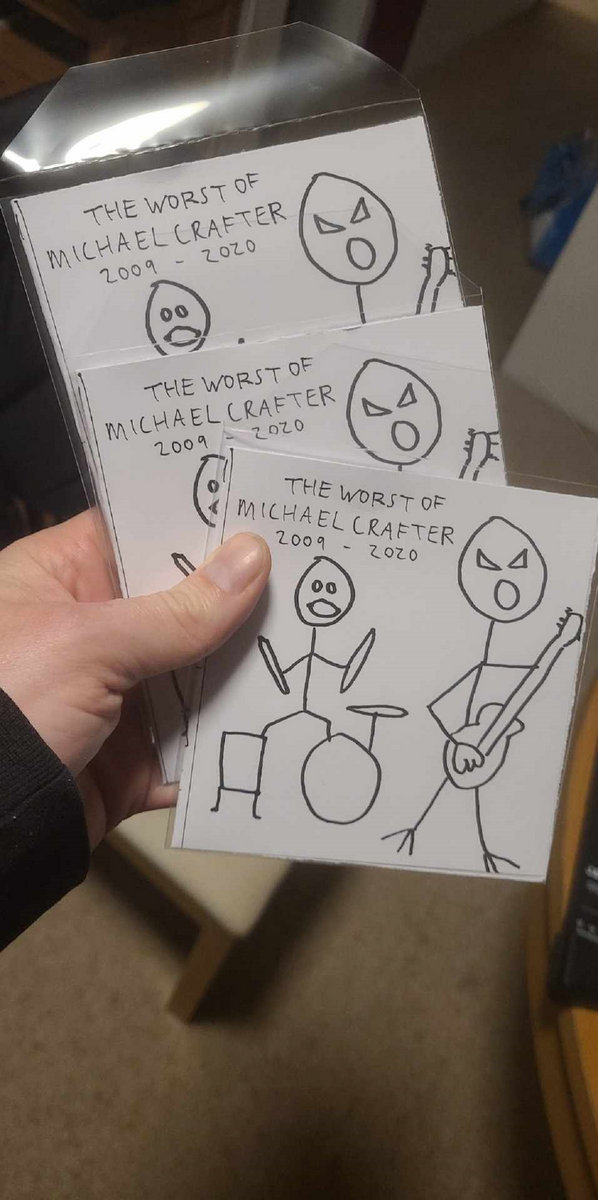 THE WORST OF
MICHAEL CRAFTER
2009 - 2020
THE WORST OF
MICHAEL CRAFTER
2009 - 2020
THE WORST OF
MICHAEL CRAFTER
2009 - 2020